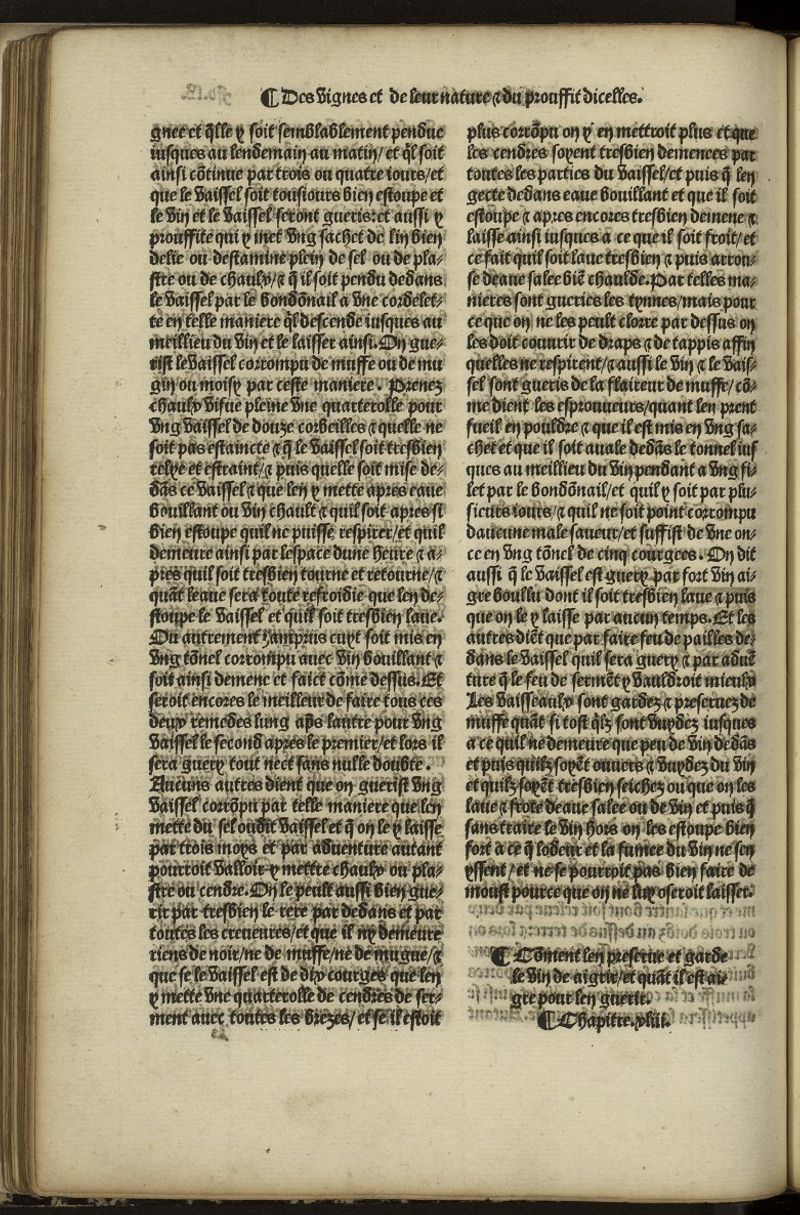 ¶ Des vignes et de leur nature ⁊ du prouffit dicelles.
gnee et q̄lle y soit semblablement pendue
iusques au lendemain au matin/ et q̄l soit
ainsi cōtinue par trois ou quatre iours/et
que le vaissel soit tousiours bien estoupe et
le vin et le vaissel seront gueris: et aussi y
prouffite qui y met vng sachet de lin bien
delie ou destamine plein de sel ou de pla⸗
stre ou de chaulx/⁊ q̄ il soit pendu dedans
le vaissel par le bondōnail a vne cordelet⸗
te en telle maniere q̄l descende iusques au
meillieu du vin et le laisser ainsi. On gue⸗
rist le vaissel corrompu de muffe ou de mu
gin ou moisy par ceste maniere. Prenez
chaulx vifue pleine vne quarterolle pour
vng vaissel de douze corbeilles ⁊ quelle ne
soit pas estaincte ⁊ q̄ le vaissel soit tresbien
relye et estraint/⁊ puis quelle soit mise de⸗
dās ce vaissel ⁊ que len y mette apres eaue
bouillant ou vin chault ⁊ quil soit apres si
bien estoupe quil ne puisse respirer/et quil
demeure ainsi par lespace dune heure ⁊ a⸗
pres quil soit tresbien tourne et retourne/⁊
quāt leaue sera toute refroidie que len de⸗
stoupe le vaissel et quil soit tresbien laue.
Ou autrement iamprius cuyt soit mis en
vng tōnel corrompu auec vin bouillant ⁊
soit ainsi demene et faict cōme dessus. Et
seroit encores le meilleur de faire tous ces
deux remedes lung aps̄ lautre pour vng
vaissel le second apres le premier/et lors il
sera guery tout nect sans nulle doubte.
Aucuns autres dient que on guerist vng
vaissel corrōpu par telle maniere que len
mette du sel oudit vaissel et q̄ on le y laisse
par trois moys et par aduenture autant
pourroit valloir y mettre chaulx ou pla⸗
stre ou cendre. On le peult aussi bien gue⸗
rir par tresbien le rere par dedans et par
toutes les creueures/et que il ny demeure
riens de noir/ne de muffe/ne de mugue/⁊
que se le vaissel est de dix courges que len
y mette vne quarterolle de cendres de ser⸗
ment auec toutes les brezes/ et se il estoit
plus corrōpu on y en mettroit plus et que
les cendres soyent tresbien demences par
toutes les parties du vaissel/et puis q̄ len
gecte dedans eaue bouillant et que il soit
estoupe ⁊ apres encores tresbien demene ⁊
laisse ainsi iusques a ce que il soit froit/et
ce fait quil soit laue tresbien ⁊ puis arrou⸗
se deaue salee biē chaulde. Par telles ma⸗
nieres sont gueries les tynnes/mais pour
ce que on ne les peult clorre par dessus on
les doit couurir de draps ⁊ de tappis affin
quelles ne respirent/⁊ aussi le vin ⁊ le vais⸗
sel sont gueris de la flaireur de muffe/ cō⸗
me dient les esprouueurs/quant len prent
fueil en pouldre ⁊ que il est mis en vng sa⸗
chet et que il soit auale dedās le tonnel ius
ques au meillieu du vin pendant a vng fi⸗
let par le bondōnail/et quil y soit par plu⸗
sieurs iours/⁊ quil ne soit point corrompu
daucune male saueur/et suffist de vne on⸗
ce en vng tōnel de cinq courgees. On dit
aussi q̄ le vaissel est guery par fort vin ai⸗
gre boullu dont il soit tresbien laue ⁊ puis
que on le y laisse par aucun temps. Et les
autres diēt que par faire feu de pailles de⸗
dans le vaissel quil sera guery ⁊ par aduē
ture q̄ le feu de sermēt y vauldroit mieulx
Les vaisseaulx sont gardez ⁊ preseruez de
muffe quāt si tost q̄lz sont vuydez iusques
a ce quil ne demeure que peu de vin dedās
et puis quilz soyēt ouuers ⁊ vuydez du vin
et quilz soyēt tresbien seichez ou que on les
laue ⁊ frote deaue salee ou de vin et puis q̄
sans traire le vin hors on les estoupe bien
fort a ce q̄ lodeur et la fumee du vin ne sen
yssent/ et ne se pourroit pas bien faire de
moust pource que on ne luy oseroit laisser.
¶ Cōment len preserue et garde
le vin de aigrir/et quāt il est ai⸗
gre pour len guerir.
¶ Chapitre. xlii.